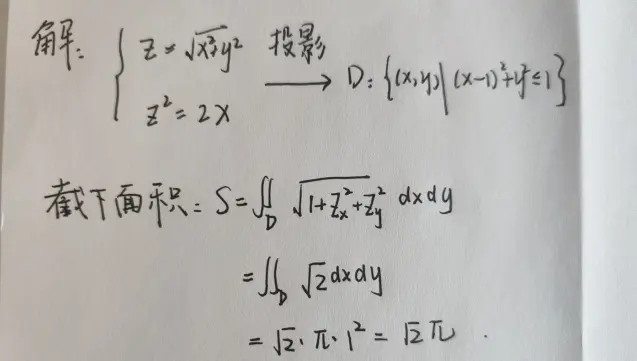 解: { z = √(x²+y²) 投影
z² = 2x ⟶ D: {(x,y) | (x-1)²+y² ≤ 1}
截下面积: S = ∬_D √(1+z_x²+z_y²) dxdy
= ∬_D √2 dxdy
= √2 · π · 1² = √2 π .